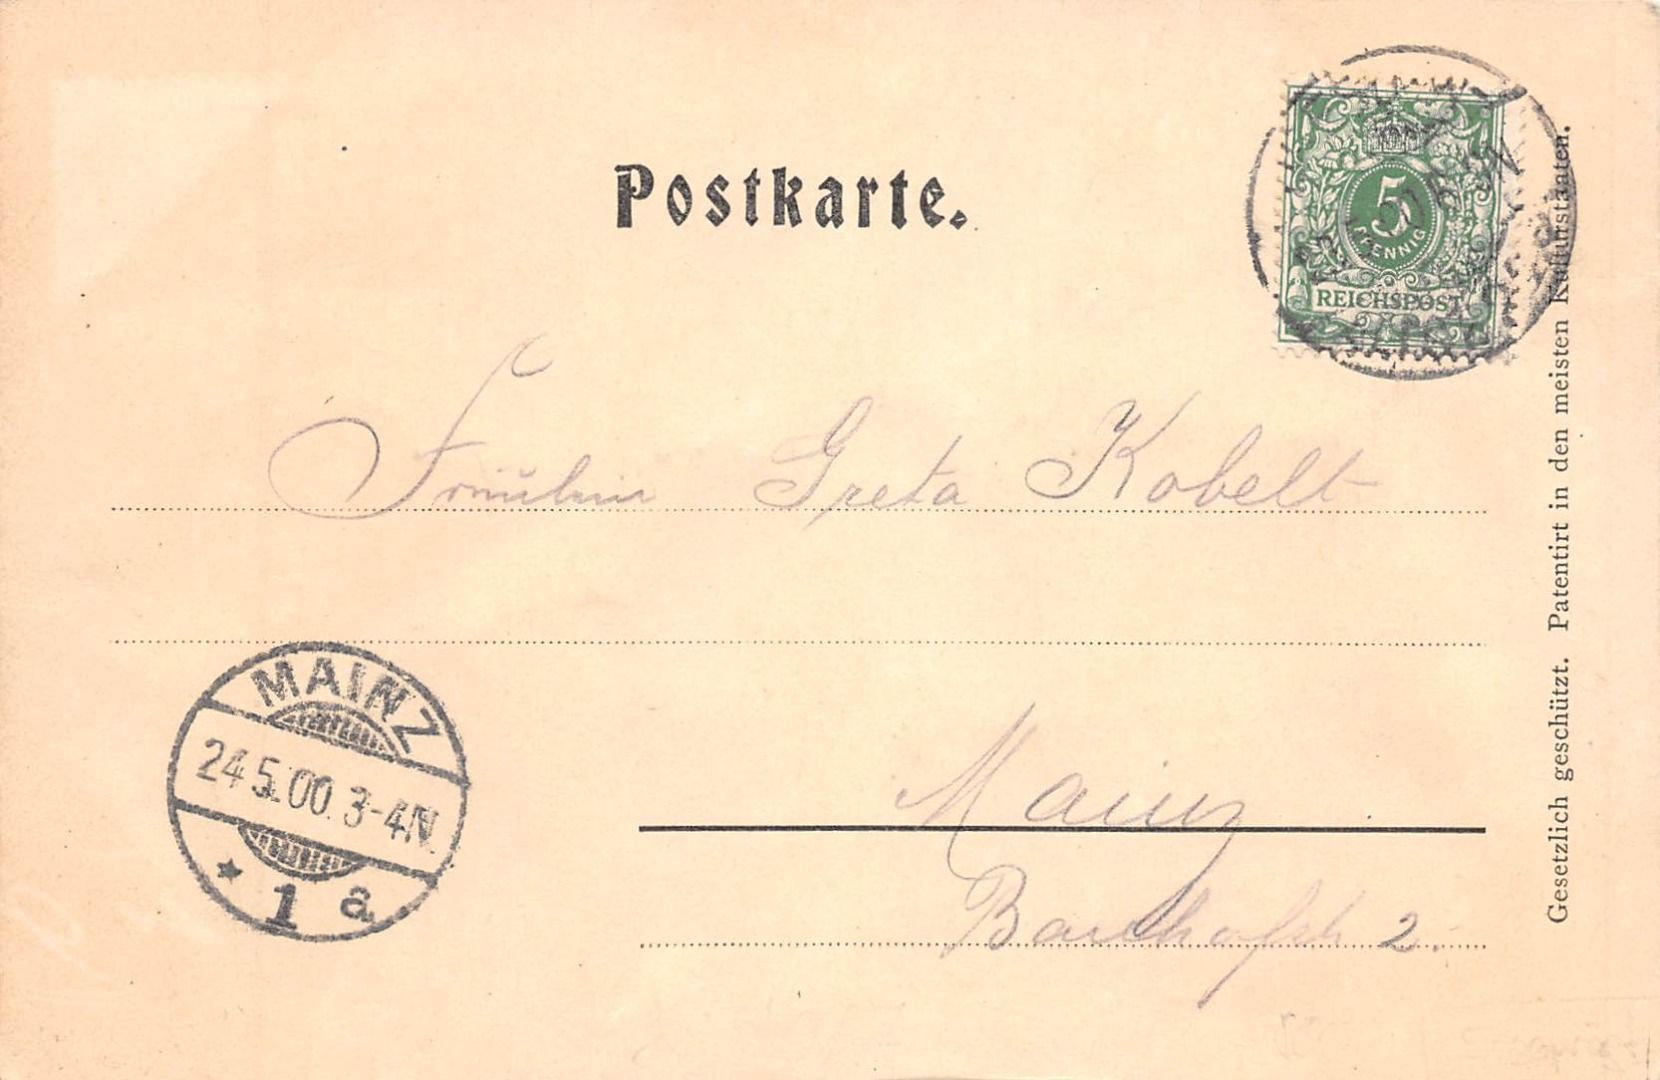 Postkarte.
5
PFENNIG
REICHSPOST
Fräulein Greta Kobelt
MAINZ
24.5.00. 3-4N.
* 1 a
Mainz
2.
Gesetzlich geschützt. Patentirt in den meisten Kulturstaaten.